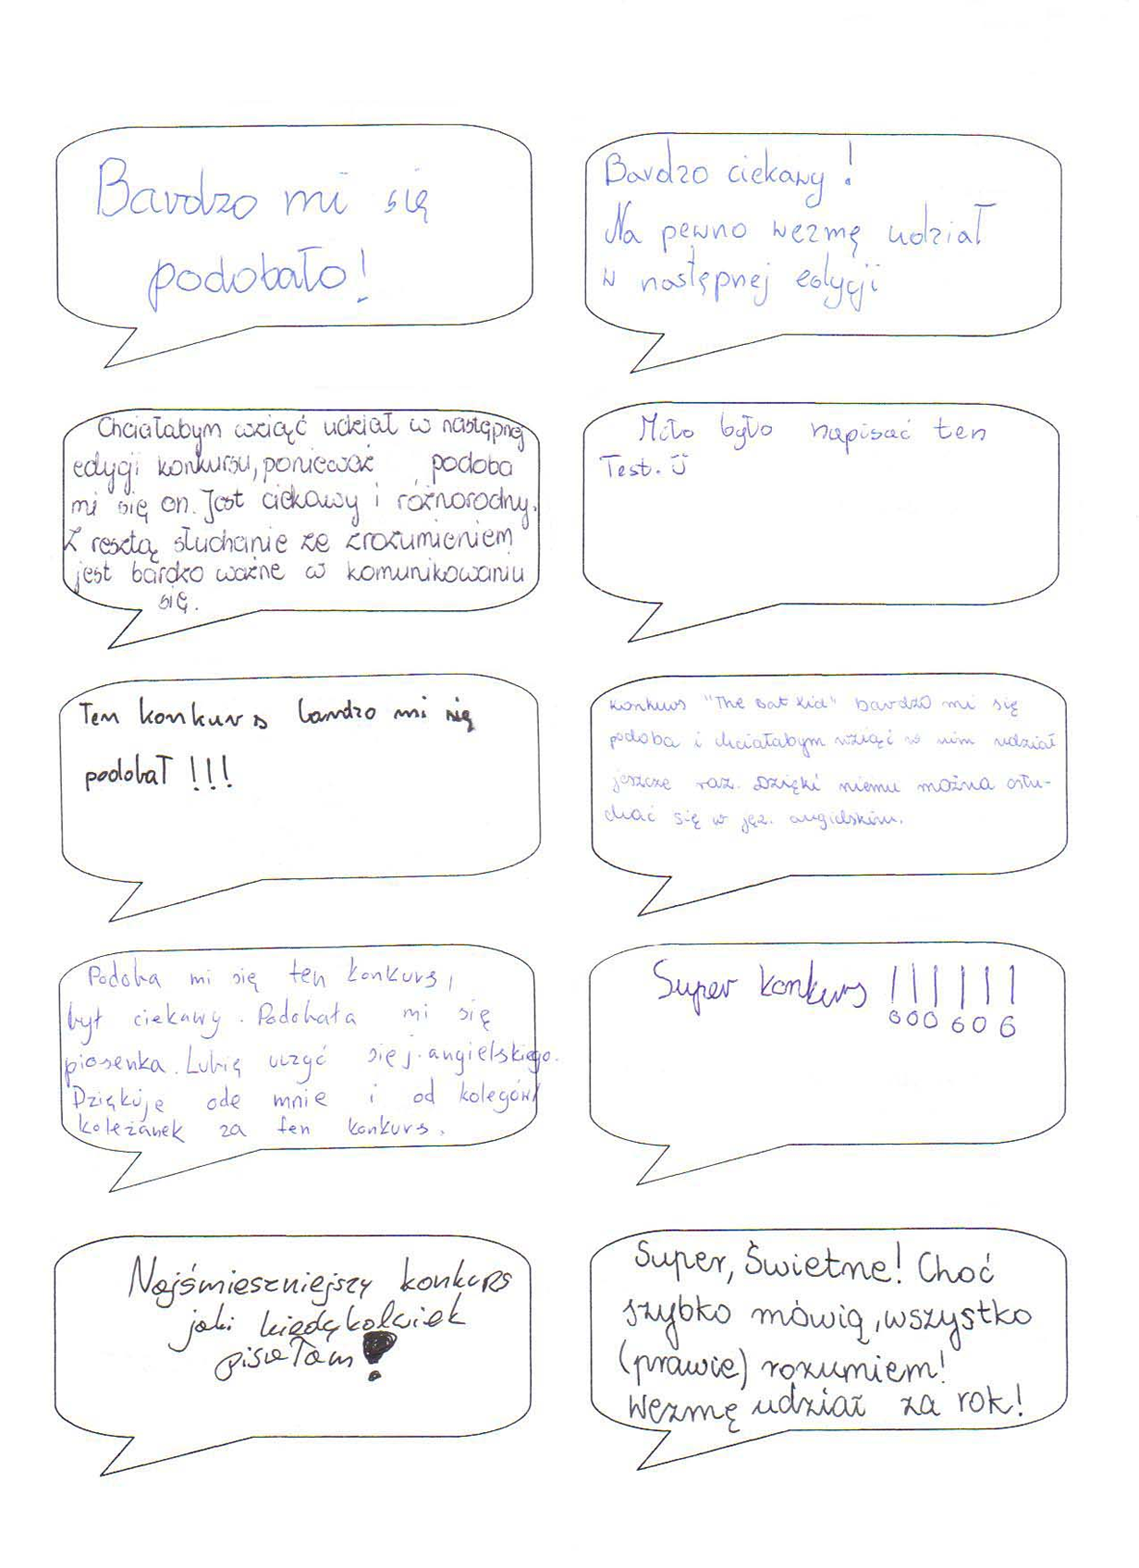 Bardzo mi się
podobało!
Bardzo ciekawy!
Na pewno wezmę udział
w następnej edycji
Chciałabym wziąć udział w następnej
edygi konkursu, ponieważ podoba
mi się on. Jest ciekawy i różnorodny.
Z resztą słuchanie ze zrozumieniem
jest bardzo ważne w komunikowaniu
się.
Miło było napisać ten
Test. Ü
Ten konkurs bardzo mi się
podobał!!!
Konkurs "The Bat Kid" bardzo mi się
podoba i chciałabym wziąć w nim udział
jeszcze raz. Dzięki niemu można osłu-
chać się w jęz. angielskim.
Podoba mi się ten konkurs,
był ciekawy. Podobała mi się
piosenka. Lubię uczyć się j. angielskiego.
Dziękuję ode mnie i od kolegów/
koleżanek za ten konkurs.
Super konkurs !!!!!!
Najśmieszniejszy konkurs
jaki kiedykolwiek
pisałam!
Super, Świetne! Choć
szybko mówią, wszystko
(prawie) rozumiem!
Wezmę udział za rok!